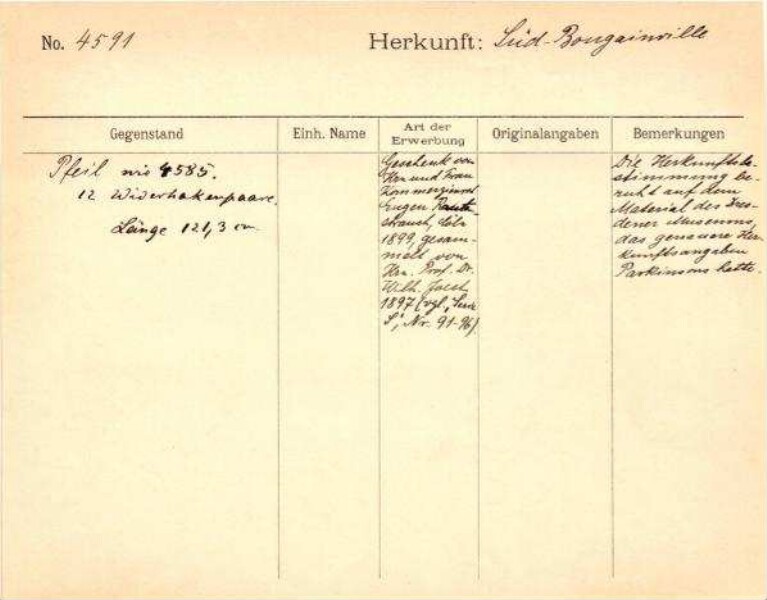 No. 4591
Herkunft: Süd-Bougainville
Gegenstand
Einh. Name
Art der
Erwerbung
Originalangaben
Bemerkungen
Pfeil wie 4585.
12 Widerhakenpaare.
Länge 121,3 cm
Geschenk von
Hrn und Frau
Kommerzienrat
Eugen Raute-
strauch, Cöln
1899, gesam-
melt von
Hrn. Prof. Dr.
Wilh. Joest
1897 (vgl.
Nr. 91-96).
Die Herkunftsbe-
stimmung be-
ruht auf dem
Material des Dres-
dener Museums,
das genauere Her-
kunftsangaben
Parkinsons hatte.